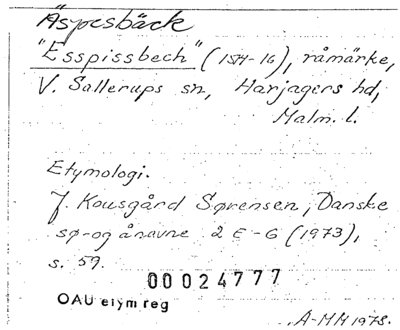 Äspesbäck
"Esspissbech" (1514-16), råmärke,
V. Sallerups sn, Harjagers hd,
Malm. l.
Etymologi.
J. Kousgård Sørensen, Danske
sø- og ånavne 2 E-G (1973),
s. 59.
00024777
OAU etym reg
A-MH 1978.